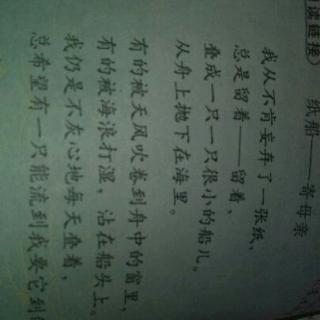 读链接
纸船——寄母亲
我从不肯妄弃了一张纸，
总是留着——留着，
叠成一只一只很小的船儿，
从舟上抛下在海里。
有的被天风吹卷到舟中的窗里，
有的被海浪打湿，沾在船头上。
我仍是不灰心地每天叠着，
总希望有一只能流到我要它到